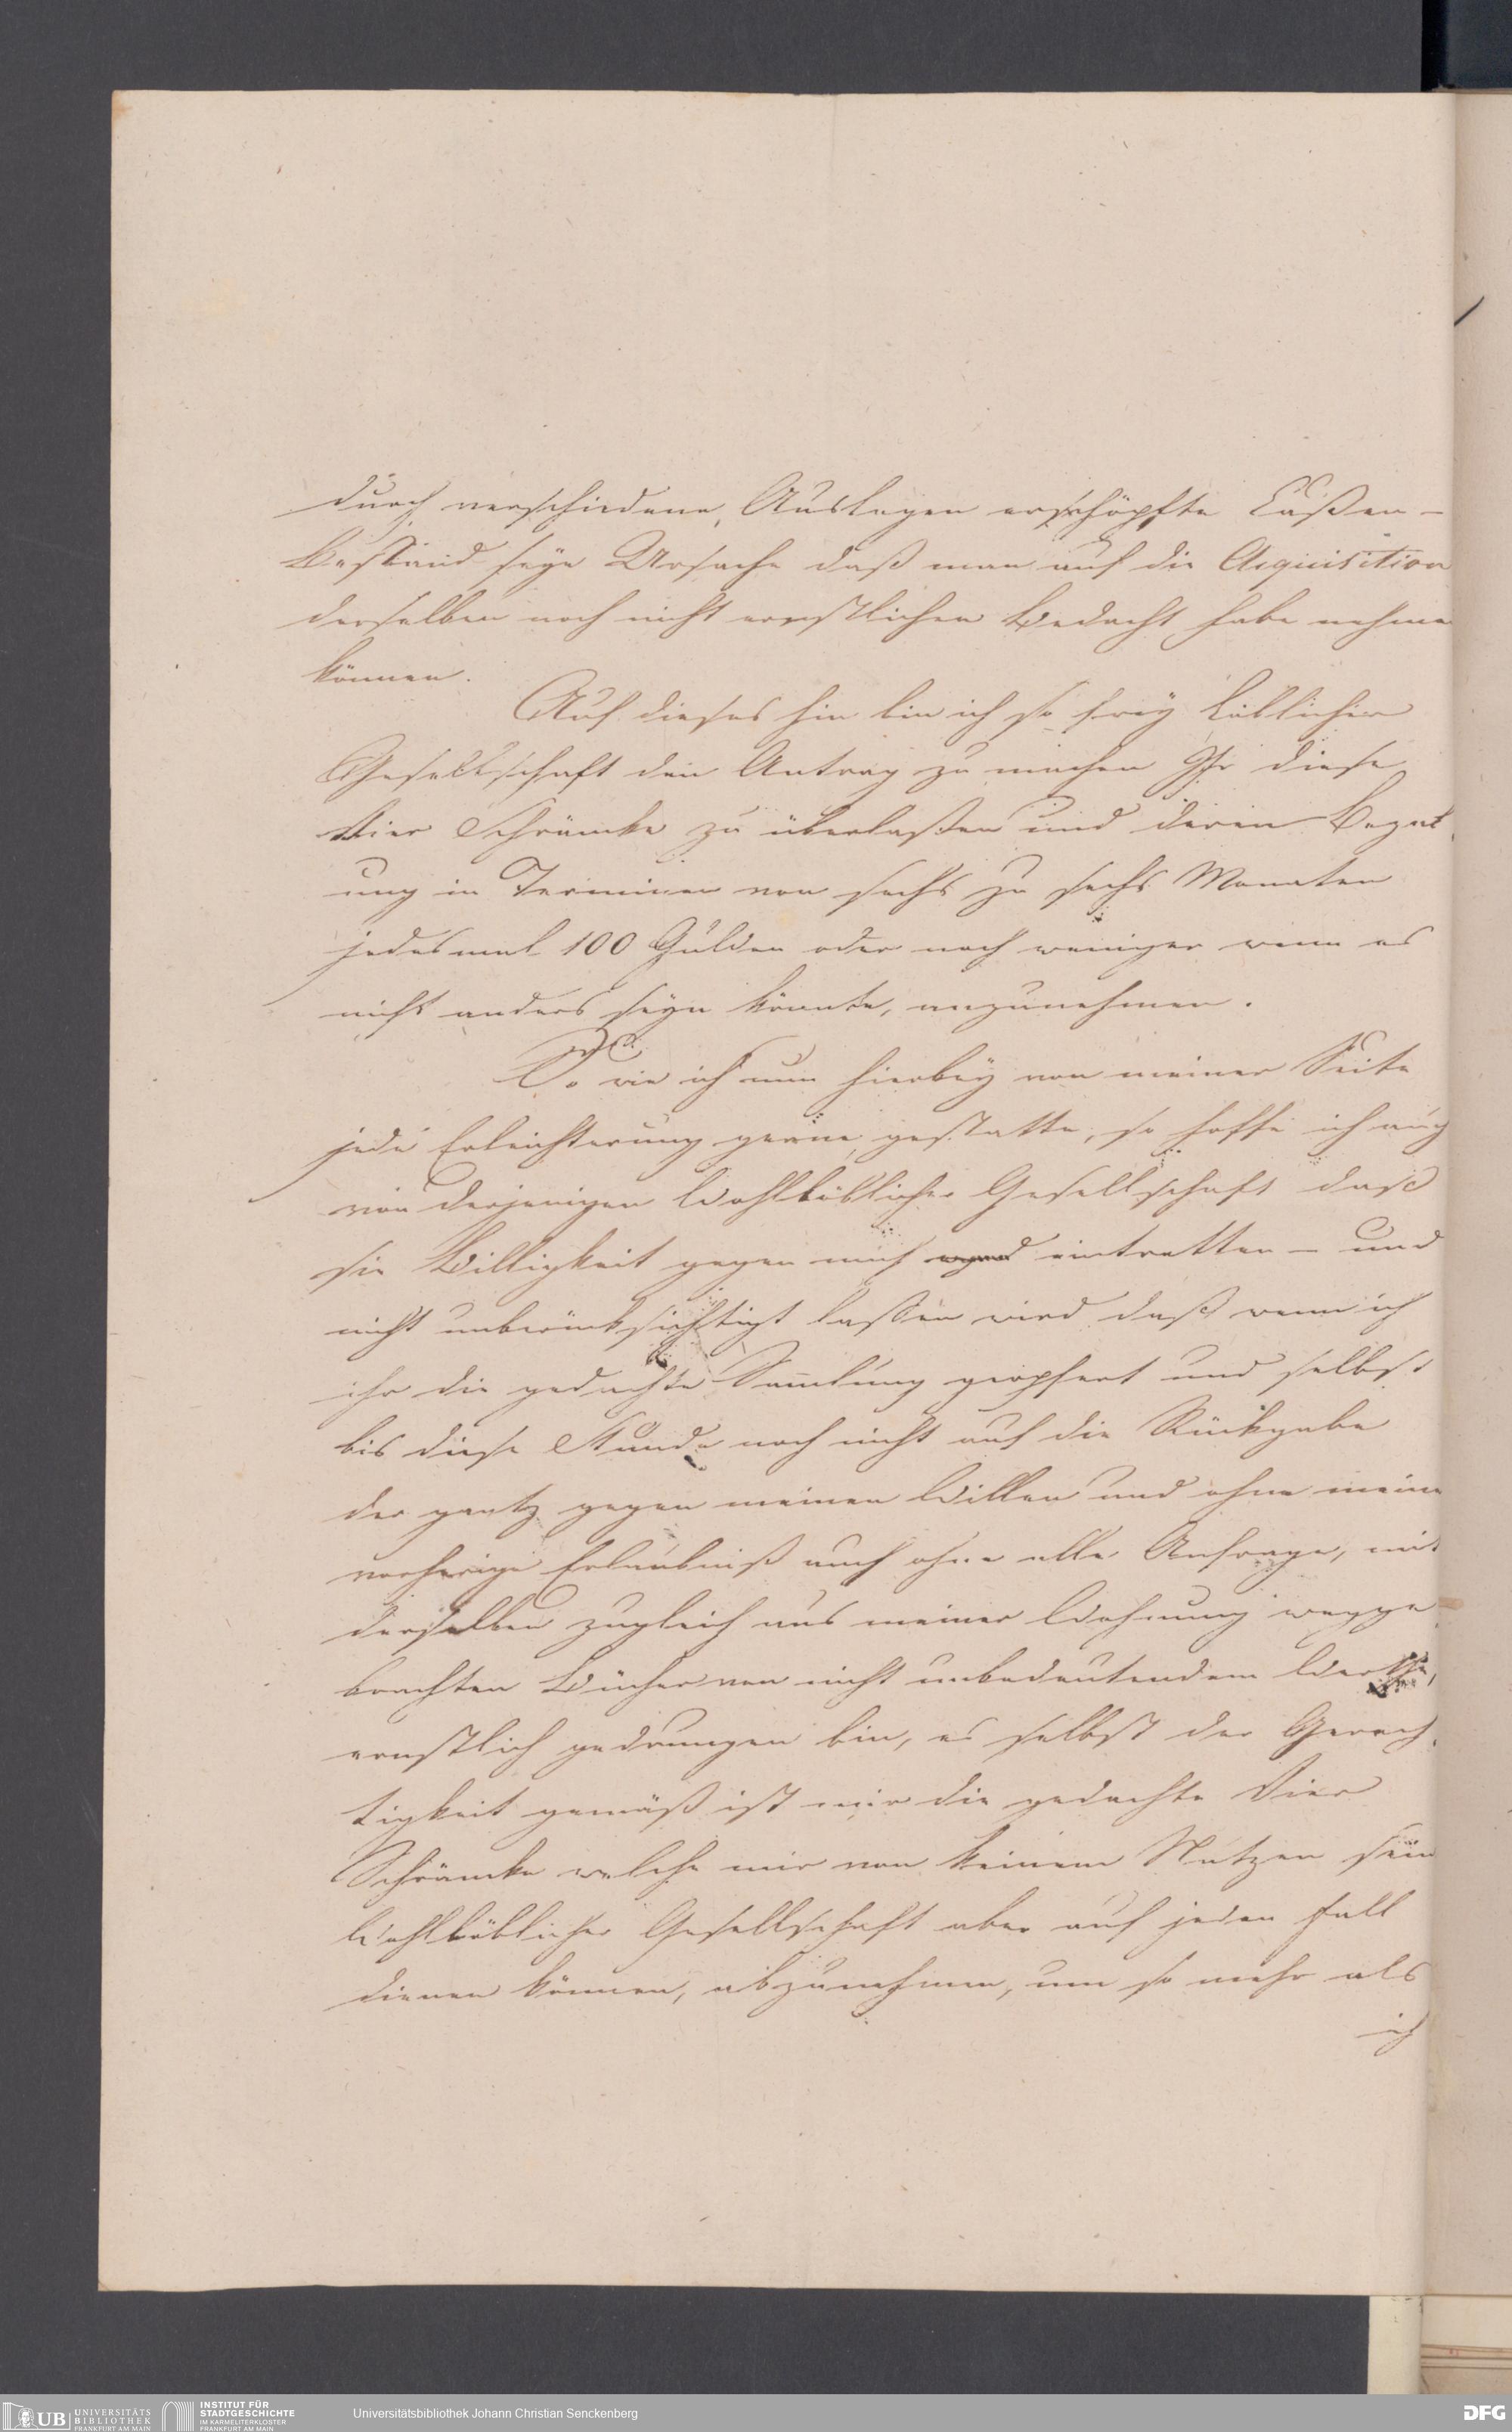 durch verschiedene, Auslagen erschöpfte Caßen-
Bestand seye Ursache daß man auf die Acquisition
derselben noch nicht ernstlichen Bedacht habe nehmen
können.
Auf dieses hin bin ich so frey löblicher
Gesellschaft den Antrag zu machen Ihr diese
Vier Schräncke zu überlaßen und deren Bezal
ung in Terminen von sechs zu sechs Monaten
jedesmal 100 Gulden oder noch weniger wenn es
nicht anders seyn könnte, anzunehmen.
So wie ich nun hierbey von meiner Seite
jede Erleichterung gerne, gestatte, so hoffe ich auch
von derjenigen Wohllöblicher Gesellschaft dass
sie Billigkeit gegen mich eintretten - und
nicht unberücksichtigt lassen wird daß wenn ich
ihr die gedachte Samlung geopfert und selbst
bis diese Stunde noch nicht auf die Rückgabe
der gantz gegen meinen Willen und ohne meine
vorherige Erlaubniß auch ohne alle Anfrage, mit
derselben zugleich aus meiner Wohnung wegge
brachten Bücher von nicht unbedeutendem Werthe,
ernstlich gedrungen bin, es selbst der Gerech
tigkeit gemäß ist mir die gedachte Vier
Schräncke welche mir von keinem Nutzen sein
Wohllöblicher Gesellschaft aber auf jeden Fall
dienen können, abzunehmen, um so mehr als
ich
UB UNIVERSITÄTS BIBLIOTHEK FRANKFURT AM MAIN
INSTITUT FÜR STADTGESCHICHTE IM KARMELITERKLOSTER FRANKFURT AM MAIN
Universitätsbibliothek Johann Christian Senckenberg
DFG